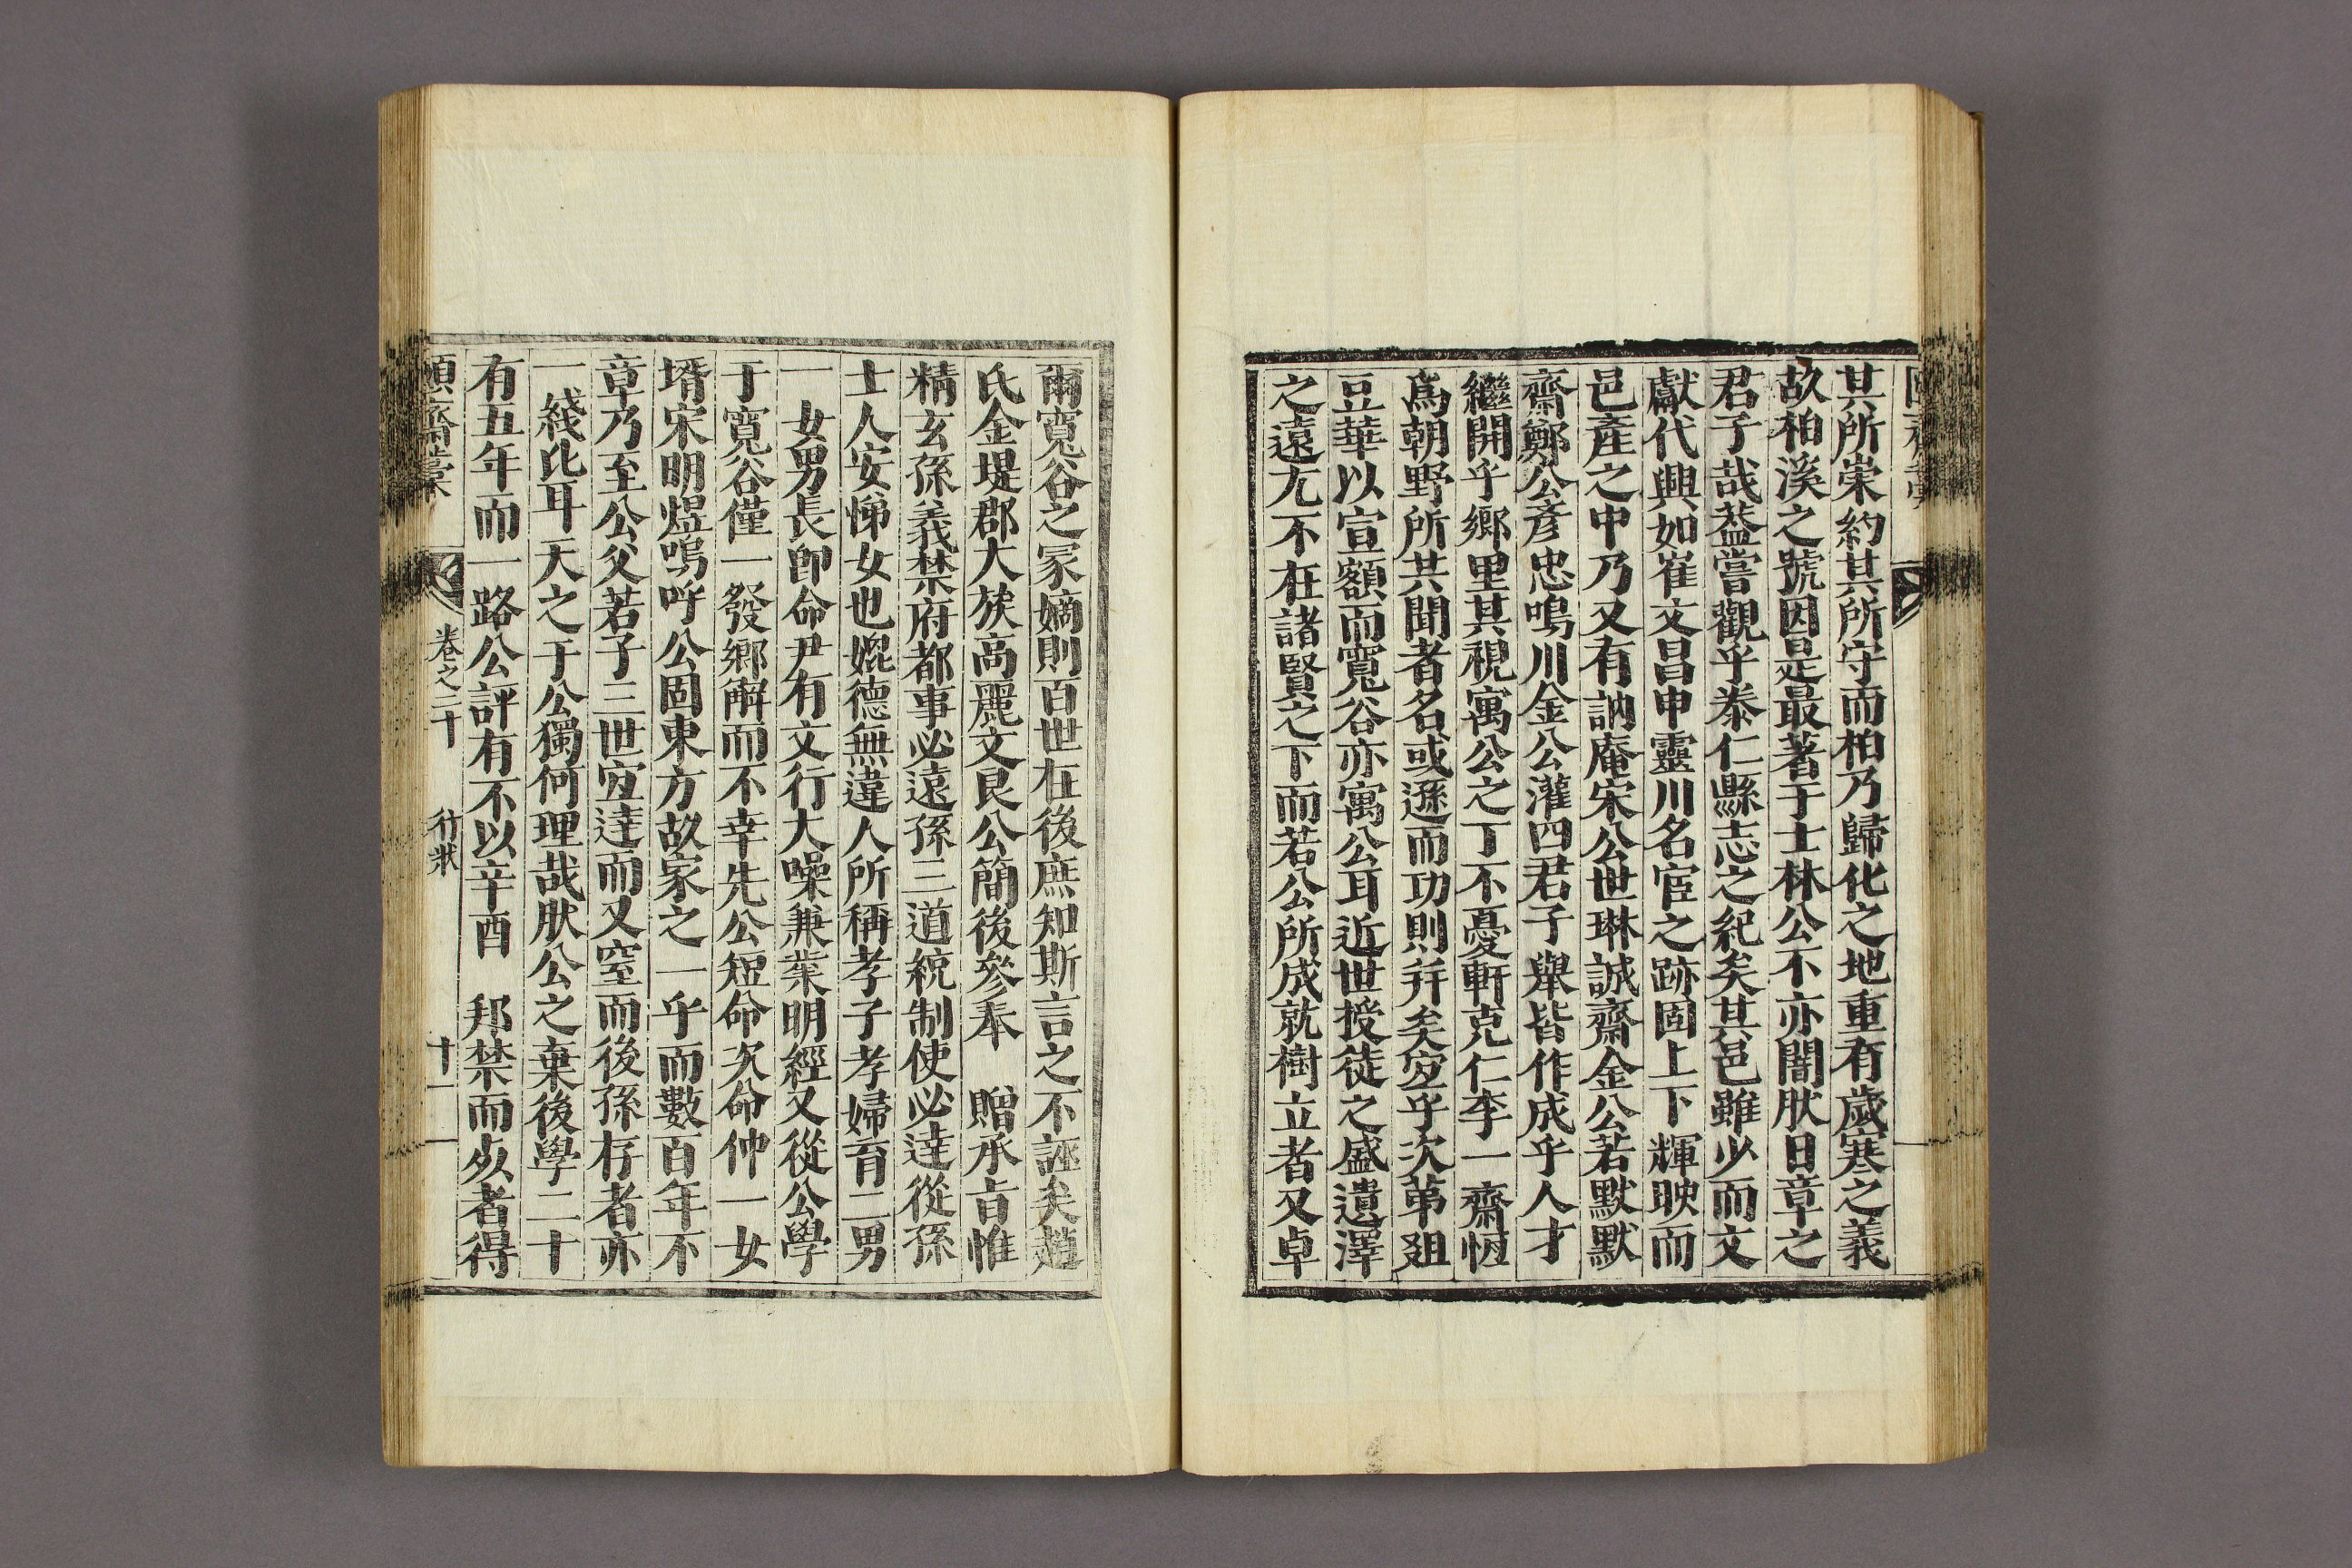 其所崇約其所守而柏乃歸化之地重有歲寒之義
故柏溪之號因是最著于士林公不亦闇肰日章之
君子哉蓋嘗觀乎泰仁縣志之紀矣其邑雖少而文
獻代興如崔文昌申靈川名宦之跡固上下輝暎而
邑產之中乃又有訥庵宋公世琳誠齋金公若默默
齋鄭公彥忠鳴川金公灌四君子舉皆作成乎人才
繼開乎鄉里其視寓公之丁不憂軒克仁李一齋恆
爲朝野所共聞者名或遜而功則幷矣宜乎次苐爼
豆華以宣額而寬谷亦寓公耳近世授徒之盛遺澤
之遠尤不在諸賢之下而若公所成就樹立者又卓
爾寬谷之冢嫡則百世在後庶知斯言之不誣矣趙
氏金堤郡大族高麗文良公簡後參奉 贈承㫖惟
精玄孫義禁府都事必遠孫三道統制使必達從孫
士人安悌女也媲德無違人所稱孝子孝婦育二男
一女男長卽命尹有文行大噪兼業明經又從公學
于寬谷僅一發鄉解而不幸先公短命次命仲一女
壻宋明煜嗚呼公固東方故家之一乎而數百年不
章乃至公父若子三世宜達而又窒而後孫存者亦
一綫比耳天之于公獨何理哉肰公之棄後學二十
有五年而一路公評有不以辛酉 邦禁而少者得
頤齋藁 卷之二十 行狀 十一